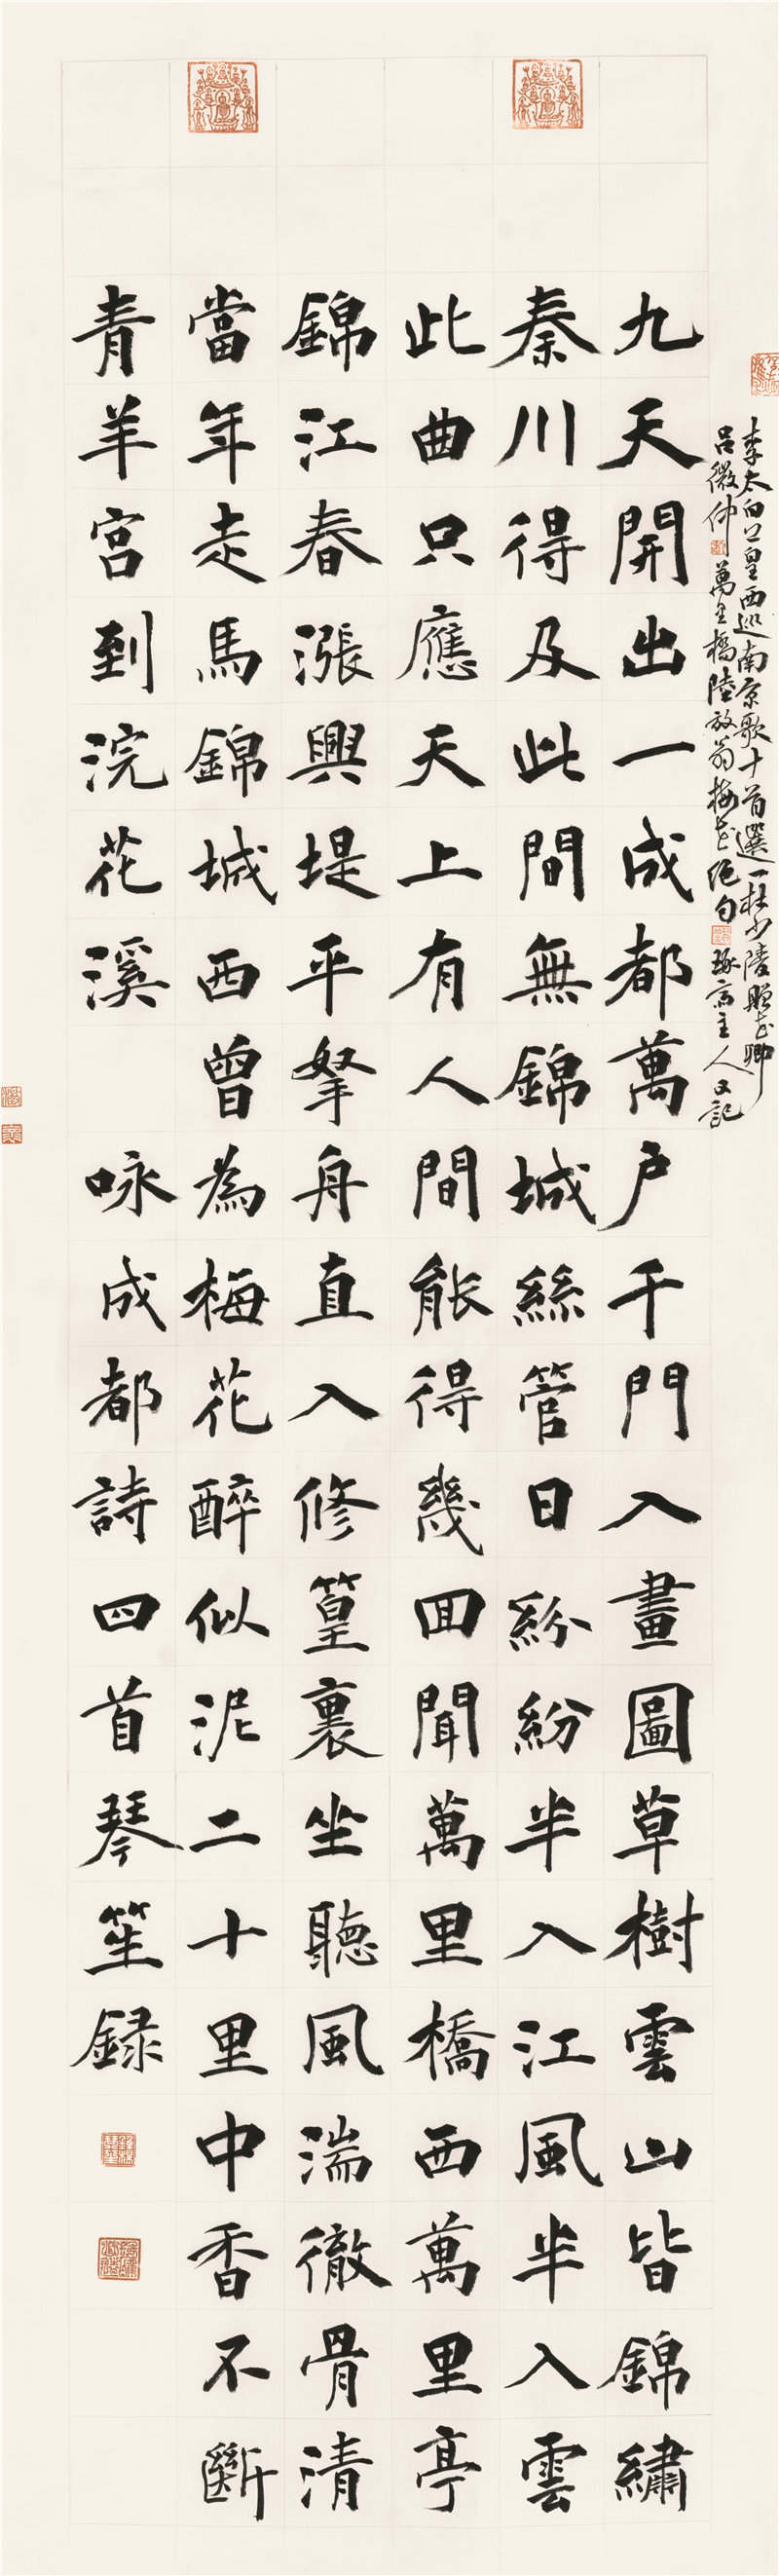 李太白上皇西巡南京歌十首選一杜少陵贈花卿
呂微仲萬里橋陸放翁梅花絕句琢齋主人又記
九天開出一成都萬戶千門入畫圖草樹雲山皆錦繡
秦川得及此間無錦城絲管日紛紛半入江風半入雲
此曲只應天上有人間能得幾回聞萬里橋西萬里亭
錦江春漲與堤平拏舟直入修篁裏坐聽風湍徹骨清
當年走馬錦城西曾為梅花醉似泥二十里中香不斷
青羊宮到浣花溪 咏成都詩四首琴笙録